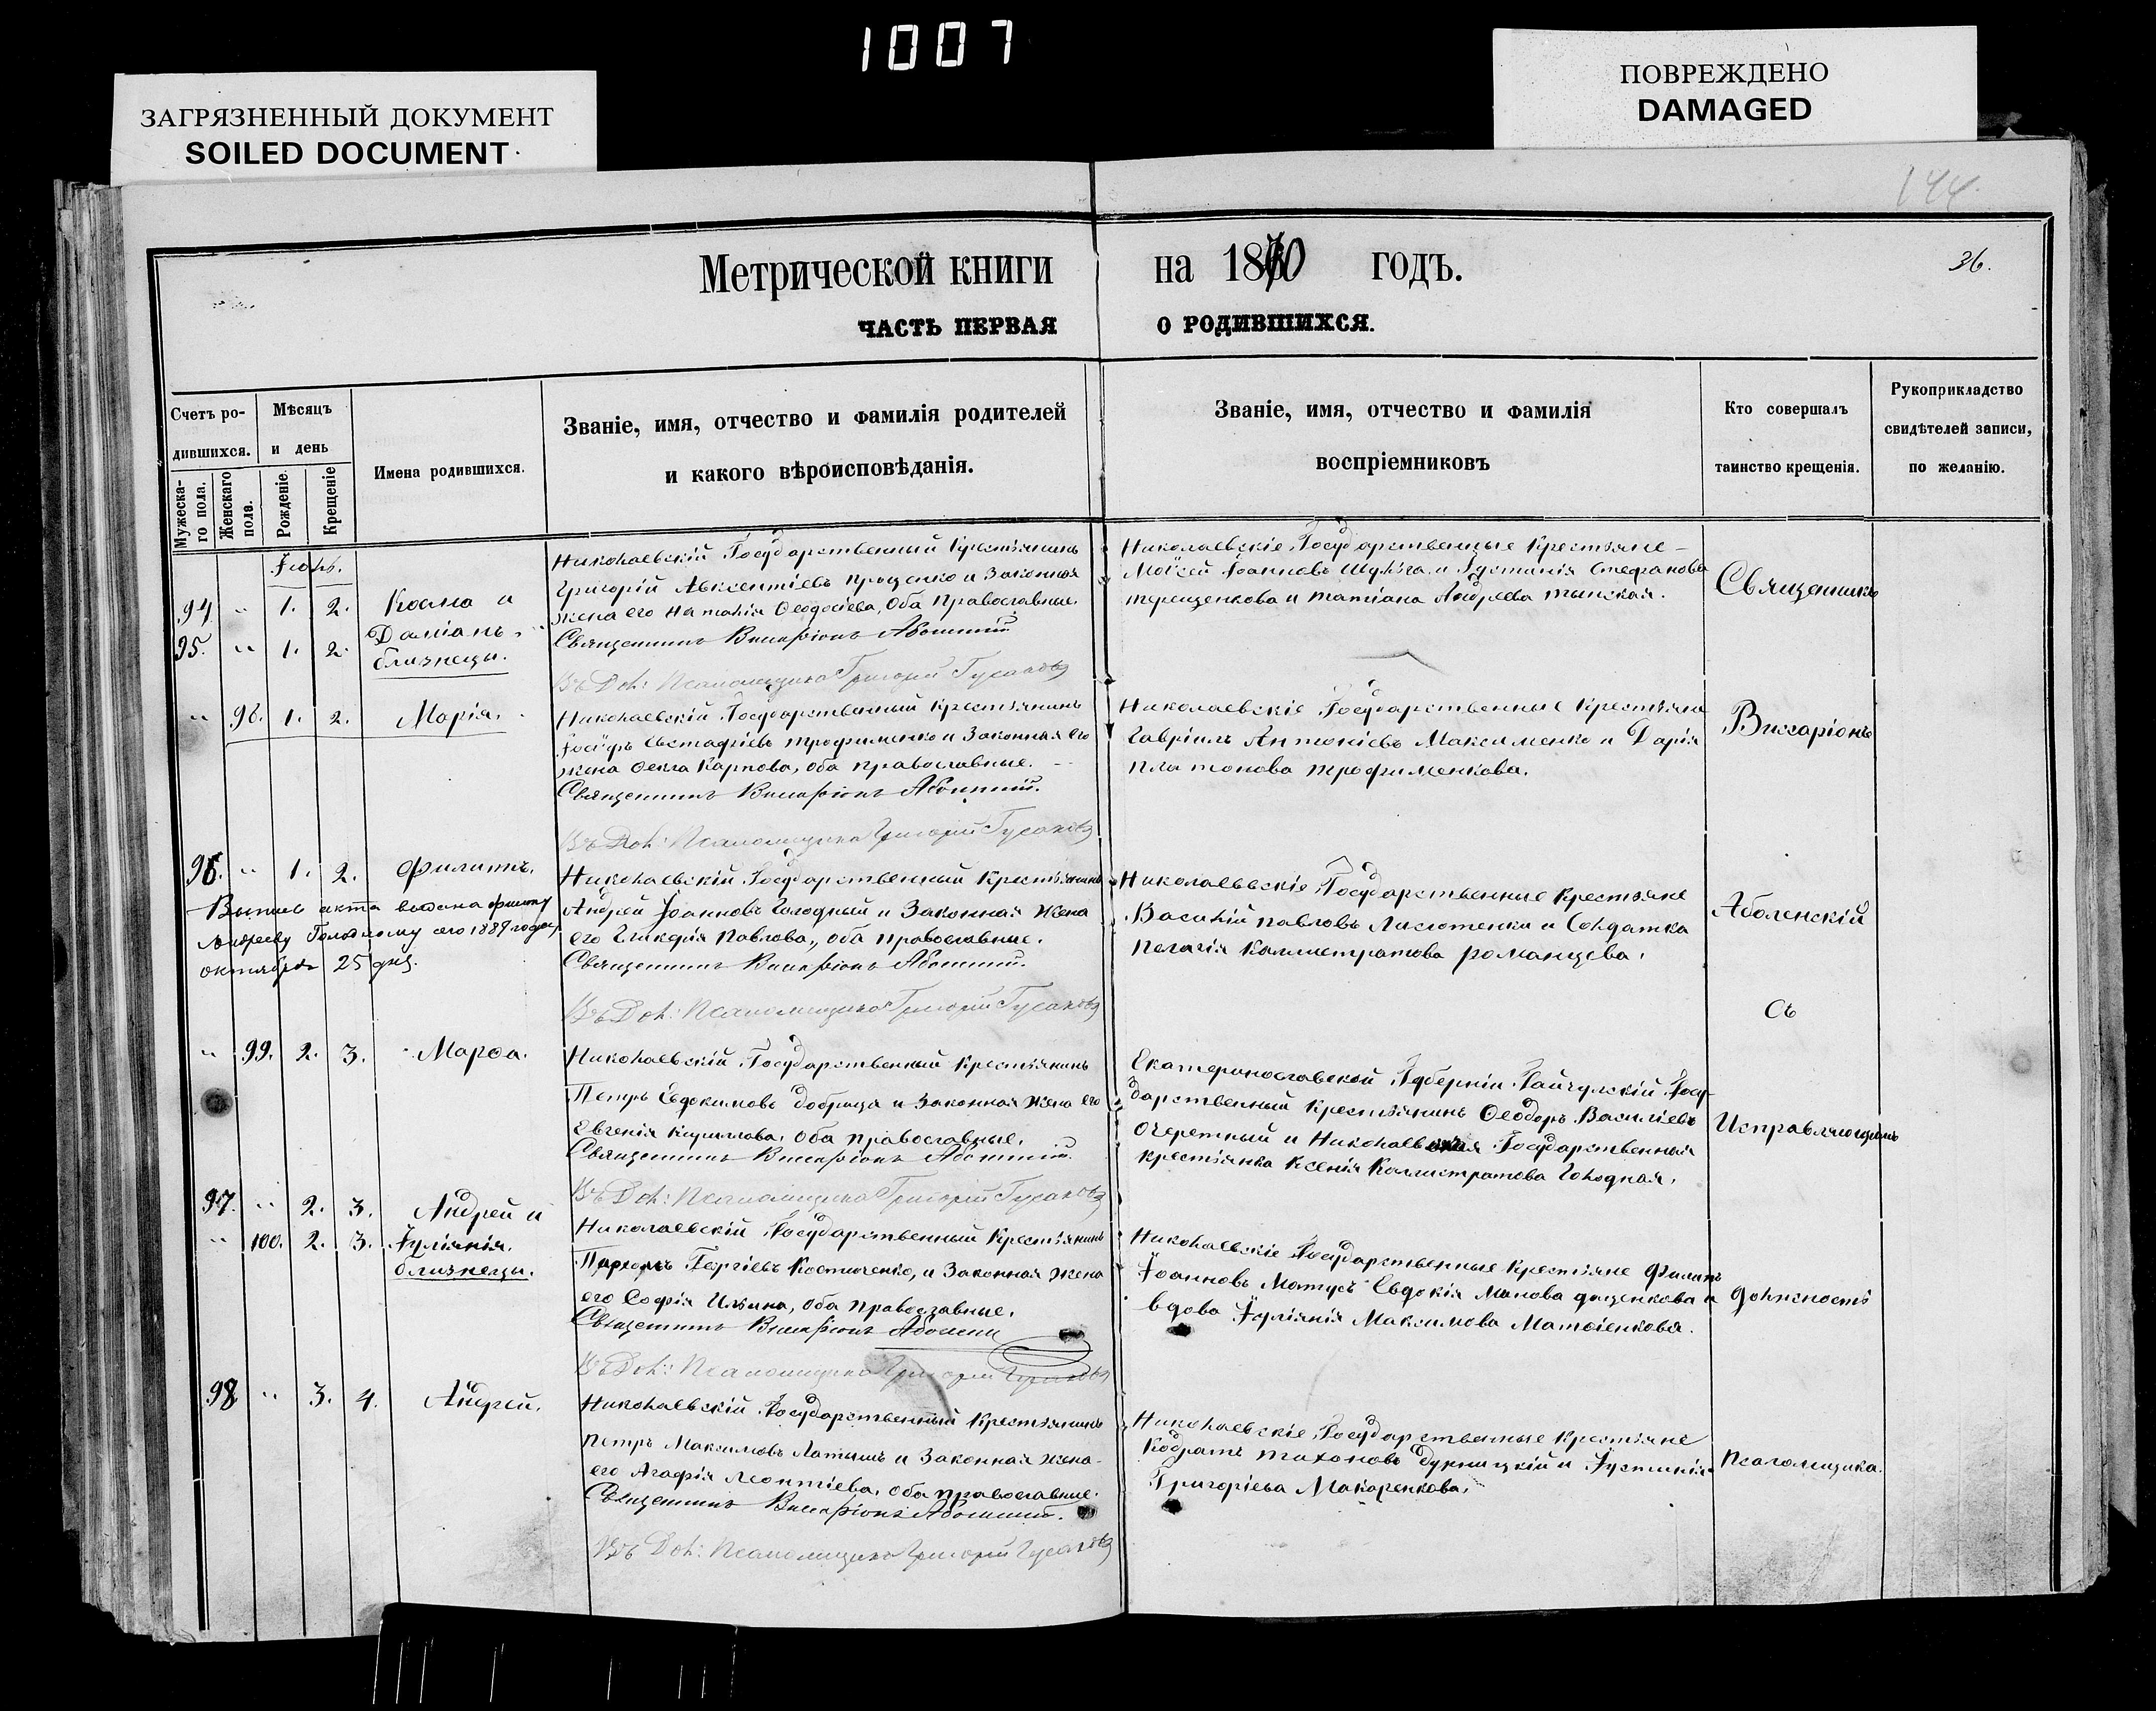 1007
ЗАГРЯЗНЕННЫЙ ДОКУМЕНТ
SOILED DOCUMENT
ПОВРЕЖДЕНО
DAMAGED
144.
36.
Метрической книги на 1870 годъ.
ЧАСТЬ ПЕРВАЯ О РОДИВШИХСЯ.
Счетъ ро-
дившихся.
Мужеска-
го пола.
Женскаго
пола.
Мѣсяцъ
и день
Рожденіе.
Крещеніе
Имена родившихся.
Званіе, имя, отчество и фамилія родителей
и какого вѣроисповѣданія.
Званіе, имя, отчество и фамилія
воспріемниковъ
Кто совершалъ
таинство крещенія.
Рукоприкладство
свидѣтелей записи,
по желанію.
94. " 1. 2. Косма и
95. " 1. 2. Даміанъ,
близнецы.
Николаевскій Государственный Крестьянинъ
Григорій Авксентіевъ Проценко и Законная
жена его Наталія Ѳеодосіева, Оба Православные.
Священникъ Виссаріонъ
Въ Дол: Псаломщика Григорій Гусаковъ
Николаевскіе Государственные Крестьяне
Моѵсей Іоанновъ Шульга и Іустинія Стефанова
терещенкова и татіана Андреева тынская.
" 96. 1. 2. Марія.
Николаевскій Государственный Крестьянинъ
Іосифъ Евстафіевъ трофименко и Законная его
жена Ѳекла Карпова, Оба православные.
Священникъ Виссаріонъ
Въ Дол: Псаломщика Григорій Гусаковъ
Николаевскіе Государственные Крестьяне
Гавріилъ Антоніевъ Максименко и Дарія
платонова трофименкова.
96. " 1. 2. Филиппъ.
Выпись акта выдана Филиппу
Андрееву Голодному сего 1889 года
октября 25 дня.
Николаевскій Государственный Крестьянинъ
Андрей Іоанновъ Голодный и Законная Жена
его Гликерія Павлова, оба православные.
Священникъ Виссаріонъ
Въ Дол: Псаломщика Григорій Гусаковъ
Николаевскіе Государственные Крестьяне
Василій павловъ и Солдатка
пелагія Каллистратова романцева.
" 99. 2. 3. Марѳа.
Николаевскій Государственный Крестьянинъ
Петръ Евдокимовъ Добрица и Законная Жена его
Евгенія Кириллова, Оба православные.
Священникъ Виссаріонъ
Въ Дол: Псаломщика Григорій Гусаковъ
Екатеринославской Губерніи Гайчулскій Госу-
дарственный Крестьянинъ Ѳеодоръ Василіевъ
Очеретный и Николаевская Государственная
крестьянка Ксенія Каллистратова Голодная.
97. " 2. 3. Андрей и
" 100. 2. 3. Іуліанія.
близнецы.
Николаевскій Государственный Крестьянинъ
Георгіевъ Костюченко, и Законная жена
его Софія Ильина, Оба православные.
Священникъ Виссаріонъ
Въ Дол: Псаломщика Григорій Гусаковъ
Николаевскіе Государственные Крестьяне Филипъ
Іоанновъ Матусъ Евдокія и
вдова Іуліянія Максимова Матѳіенкова.
98 " 3. 4. Андрей.
Николаевскій Государственный Крестьянинъ
петръ Максимовъ Латышъ и Законная жена
его Агафія Леонтіева, Оба православные.
Священникъ Виссаріонъ
Въ Дол: Псаломщика Григорій Гусаковъ
Николаевскіе Государственные Крестьяне
Кодратъ тихоновъ и Іустинія
Григоріева Макаренкова.
Священникъ
Виссаріонъ
Аболенскій
Съ
Исправляющимъ
должность
Псаломщика.